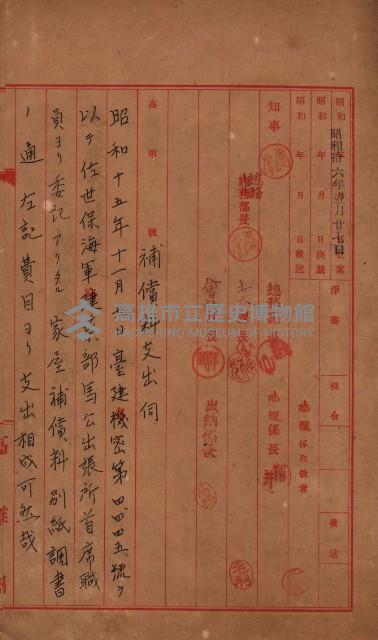 昭和十六年 月廿七日 案
昭和 年 月 日決裁
昭和 年 月 日發送
淨書
校合
發送
知事
總務部長
總務課長
地理係長
地理係取扱者
會計課長
出納係長
高 第 號
補償料支出伺
昭和十五年十一月 日臺建機密第四四四五號ヲ
以テ佐世保海軍建築部馬公出張所首席職
員ヨリ委託アリタル家屋補償料別紙調書
ノ通左記費目ヨリ支出相成可然哉
高雄市立歷史博物館
KAOHSIUNG MUSEUM OF HISTORY
高雄州